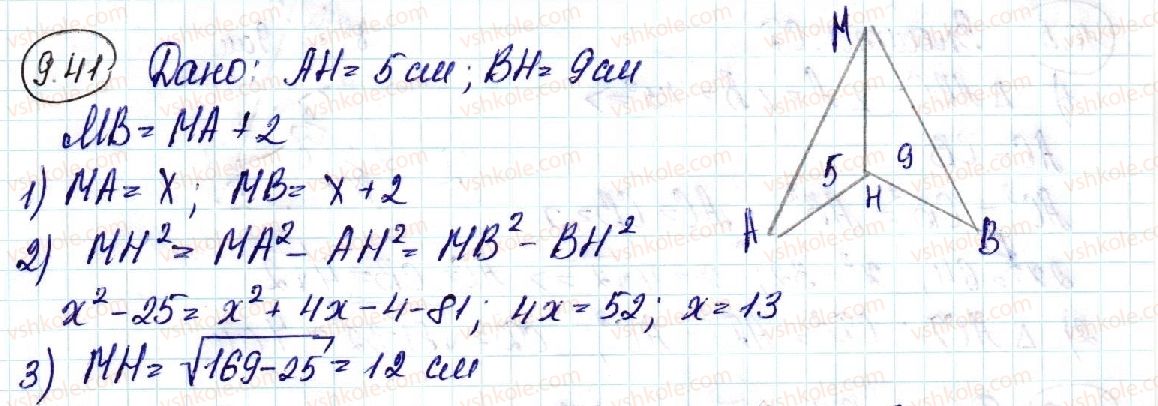 9.41 Дано: AH = 5 см; BH = 9 см
MB = MA + 2
1) MA = x; MB = x + 2
2) MH² = MA² - AH² = MB² - BH²
x² - 25 = x² + 4x - 4 - 81; 4x = 52; x = 13
3) MH = √169-25 = 12 см
M
5 9
H
A B
vshkole.com